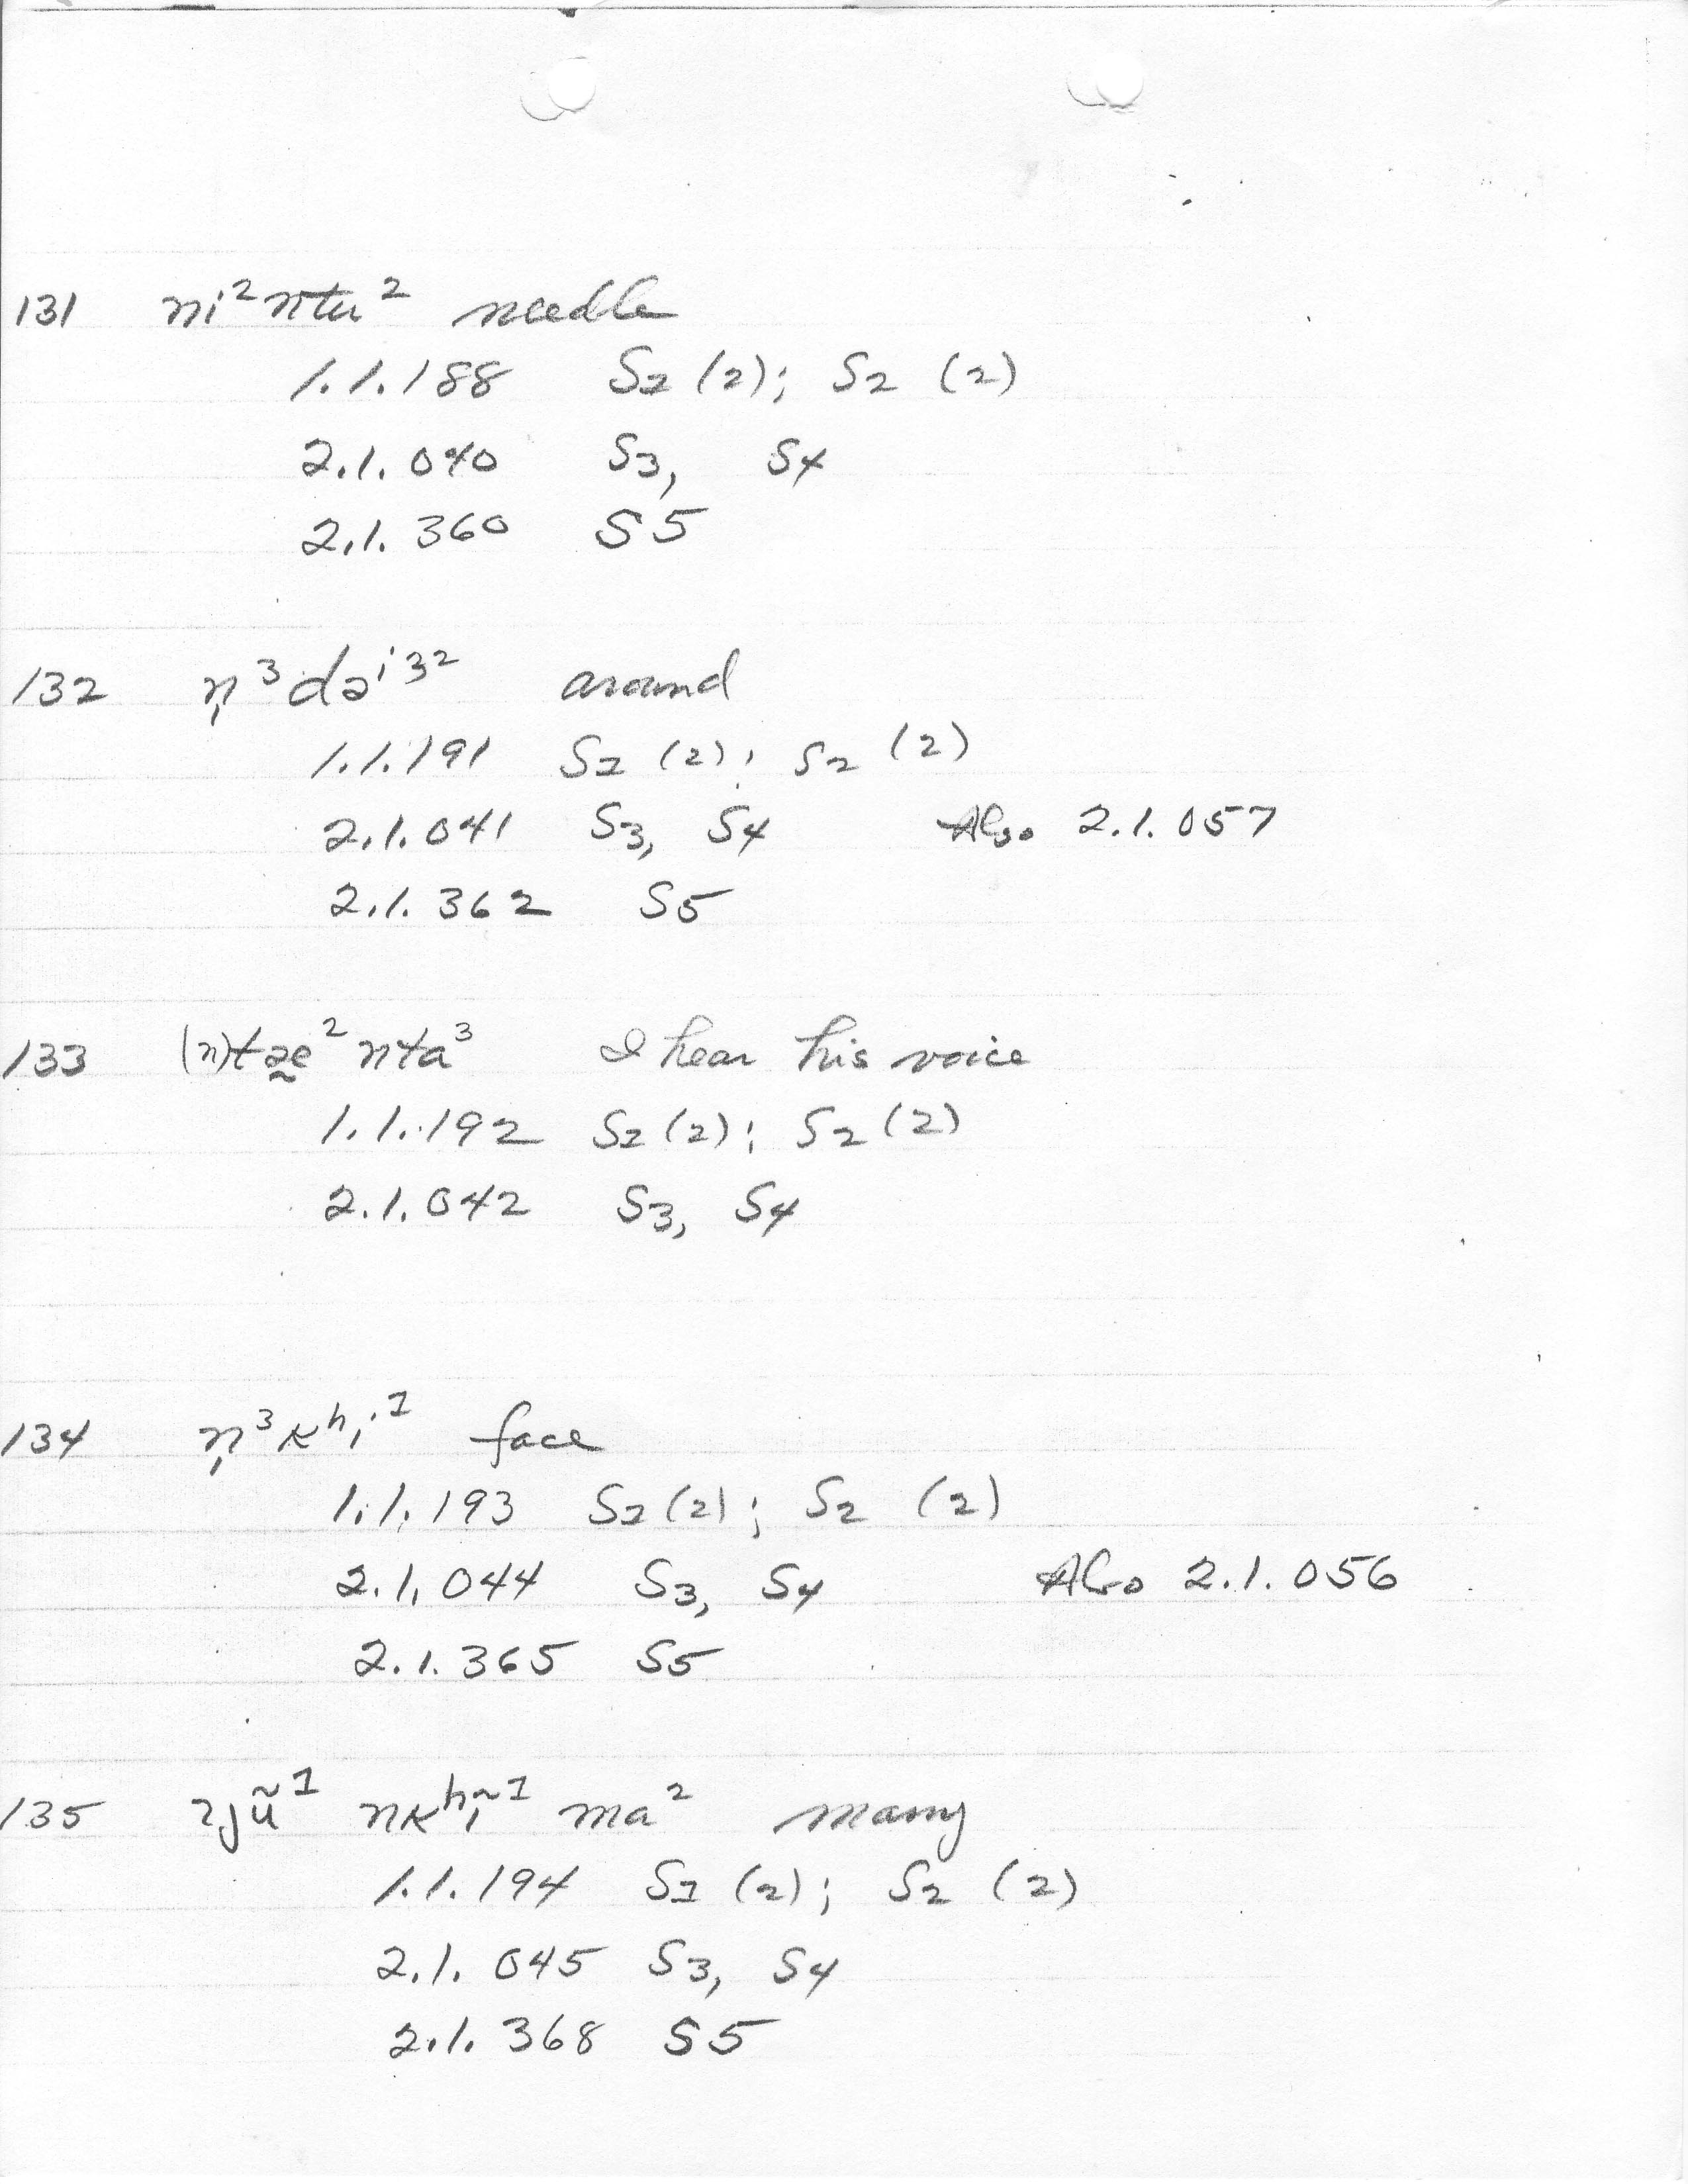 131 ni² ntu² needle
1.1.188 S1 (2); S2 (2)
2.1.040 S3, S4
2.1.360 S5
132 n̩³dəⁱ³² around
1.1.191 S1 (2); S2 (2)
2.1.041 S3, S4 Also 2.1.057
2.1.362 S5
133 (n)ta̰e² nta³ I hear his voice
1.1.192 S1 (2); S2 (2)
2.1.042 S3, S4
134 n̩³kʰi¹ face
1.1.193 S1 (2); S2 (2)
2.1.044 S3, S4 Also 2.1.056
2.1.365 S5
135 ʔjũ¹ nkʰĩ¹ ma² many
1.1.194 S1 (2); S2 (2)
2.1.045 S3, S4
2.1.368 S5